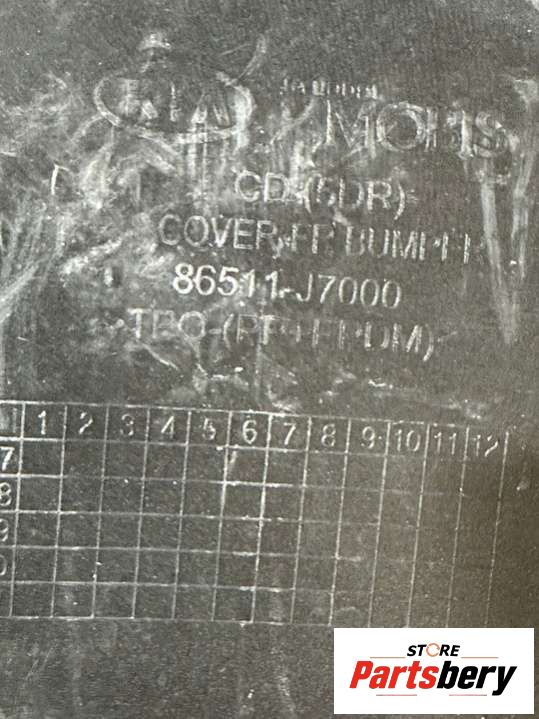 KIA MOBIS
CD-(5DR)
COVER-FR BUMPER
86511-J7000
>TEO-(PP+EPDM)
1 2 3 4 5 6 7 8 9 10 11 12
7
8
9
0
STORE
Partsbery